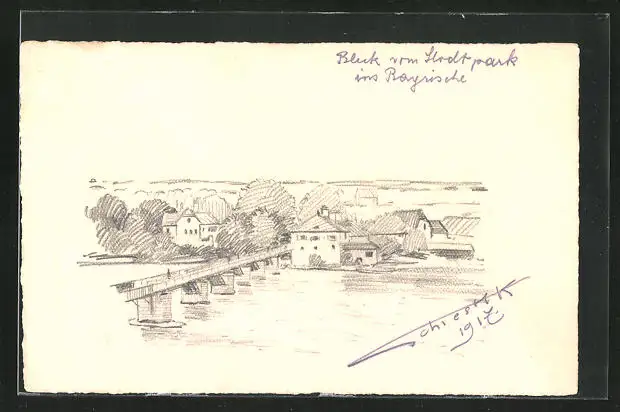 Blick vom Stadtpark
ins Bayrische
Schiestl
1917.